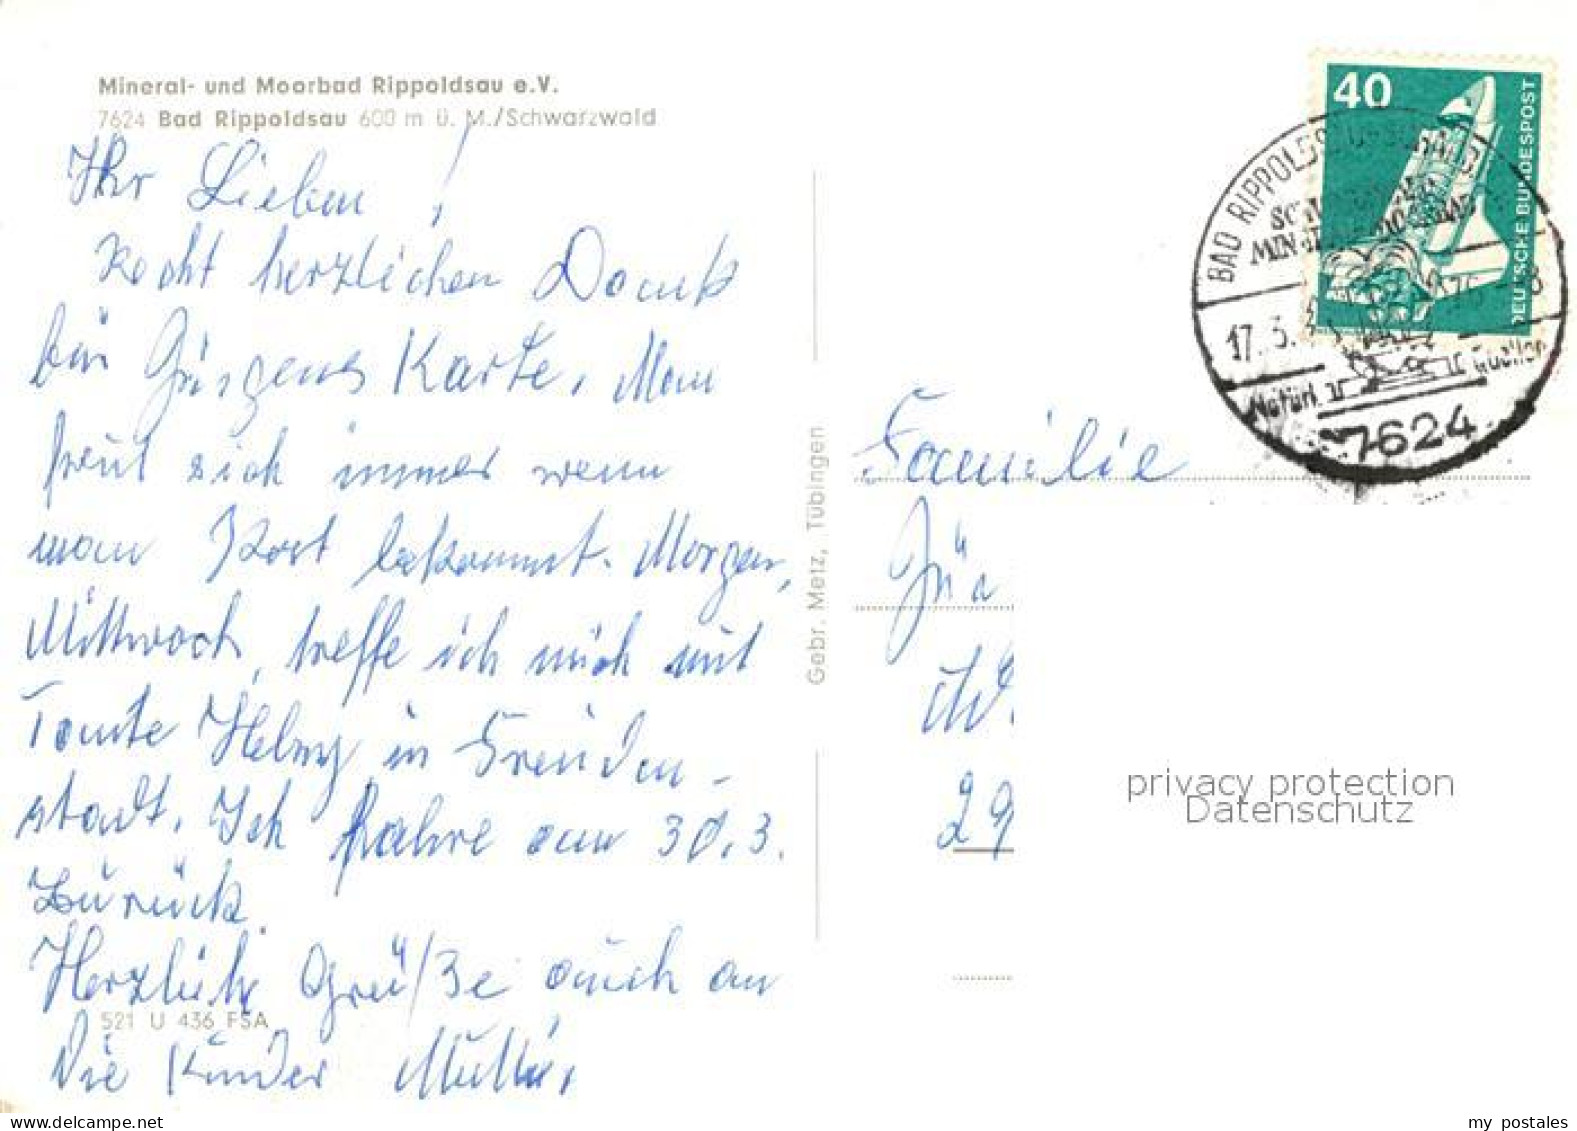 Mineral- und Moorbad Rippoldsau e.V.
7624 Bad Rippoldsau 600 m ü. M./Schwarzwald
Ihr Lieben!
Recht herzlichen Dank
für Jürgens Karte. Man
freut sich immer wenn
man Post bekommt. Morgen,
Mittwoch, treffe ich mich mit
Tante Helmy in Freuden-
stadt. Ich fahre am 30.3.
Zurück.
Herzliche Grüße auch an
Die Kinder Mutti.
521 U 436 FSA
Gebr. Metz, Tübingen
40
DEUTSCHE BUNDESPOST
BAD RIPPOLDS
17.3.
76 - 8
Natürl.
Quellen
7624
Familie
Jü
29
privacy protection
Datenschutz
www.delcampe.net
my_postales